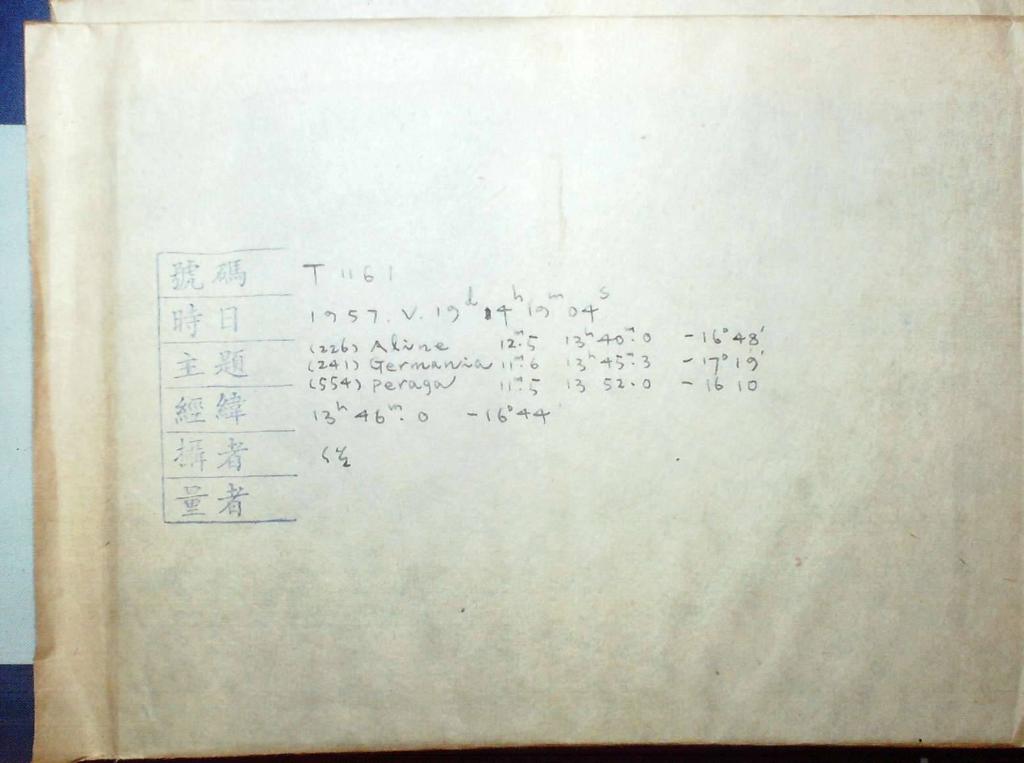 號碼 T 1161
時日 1957. V. 19ᵈ 14ʰ 19ᵐ 04ˢ
主題 (226) Aline 12ᵐ.5 13ʰ 40ᵐ.0 -16° 48'
(241) Germania 11ᵐ.6 13ʰ 45ᵐ.3 -17° 19'
(554) peraga 11ᵐ.5 13 52.0 -16 10
經緯 13ʰ 46ᵐ.0 -16° 44'
攝者
量者